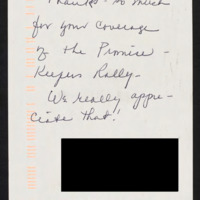 Thanks - so much
for your coverage
of the Promise -
Keepers Rally -
We really appre-
ciate that!